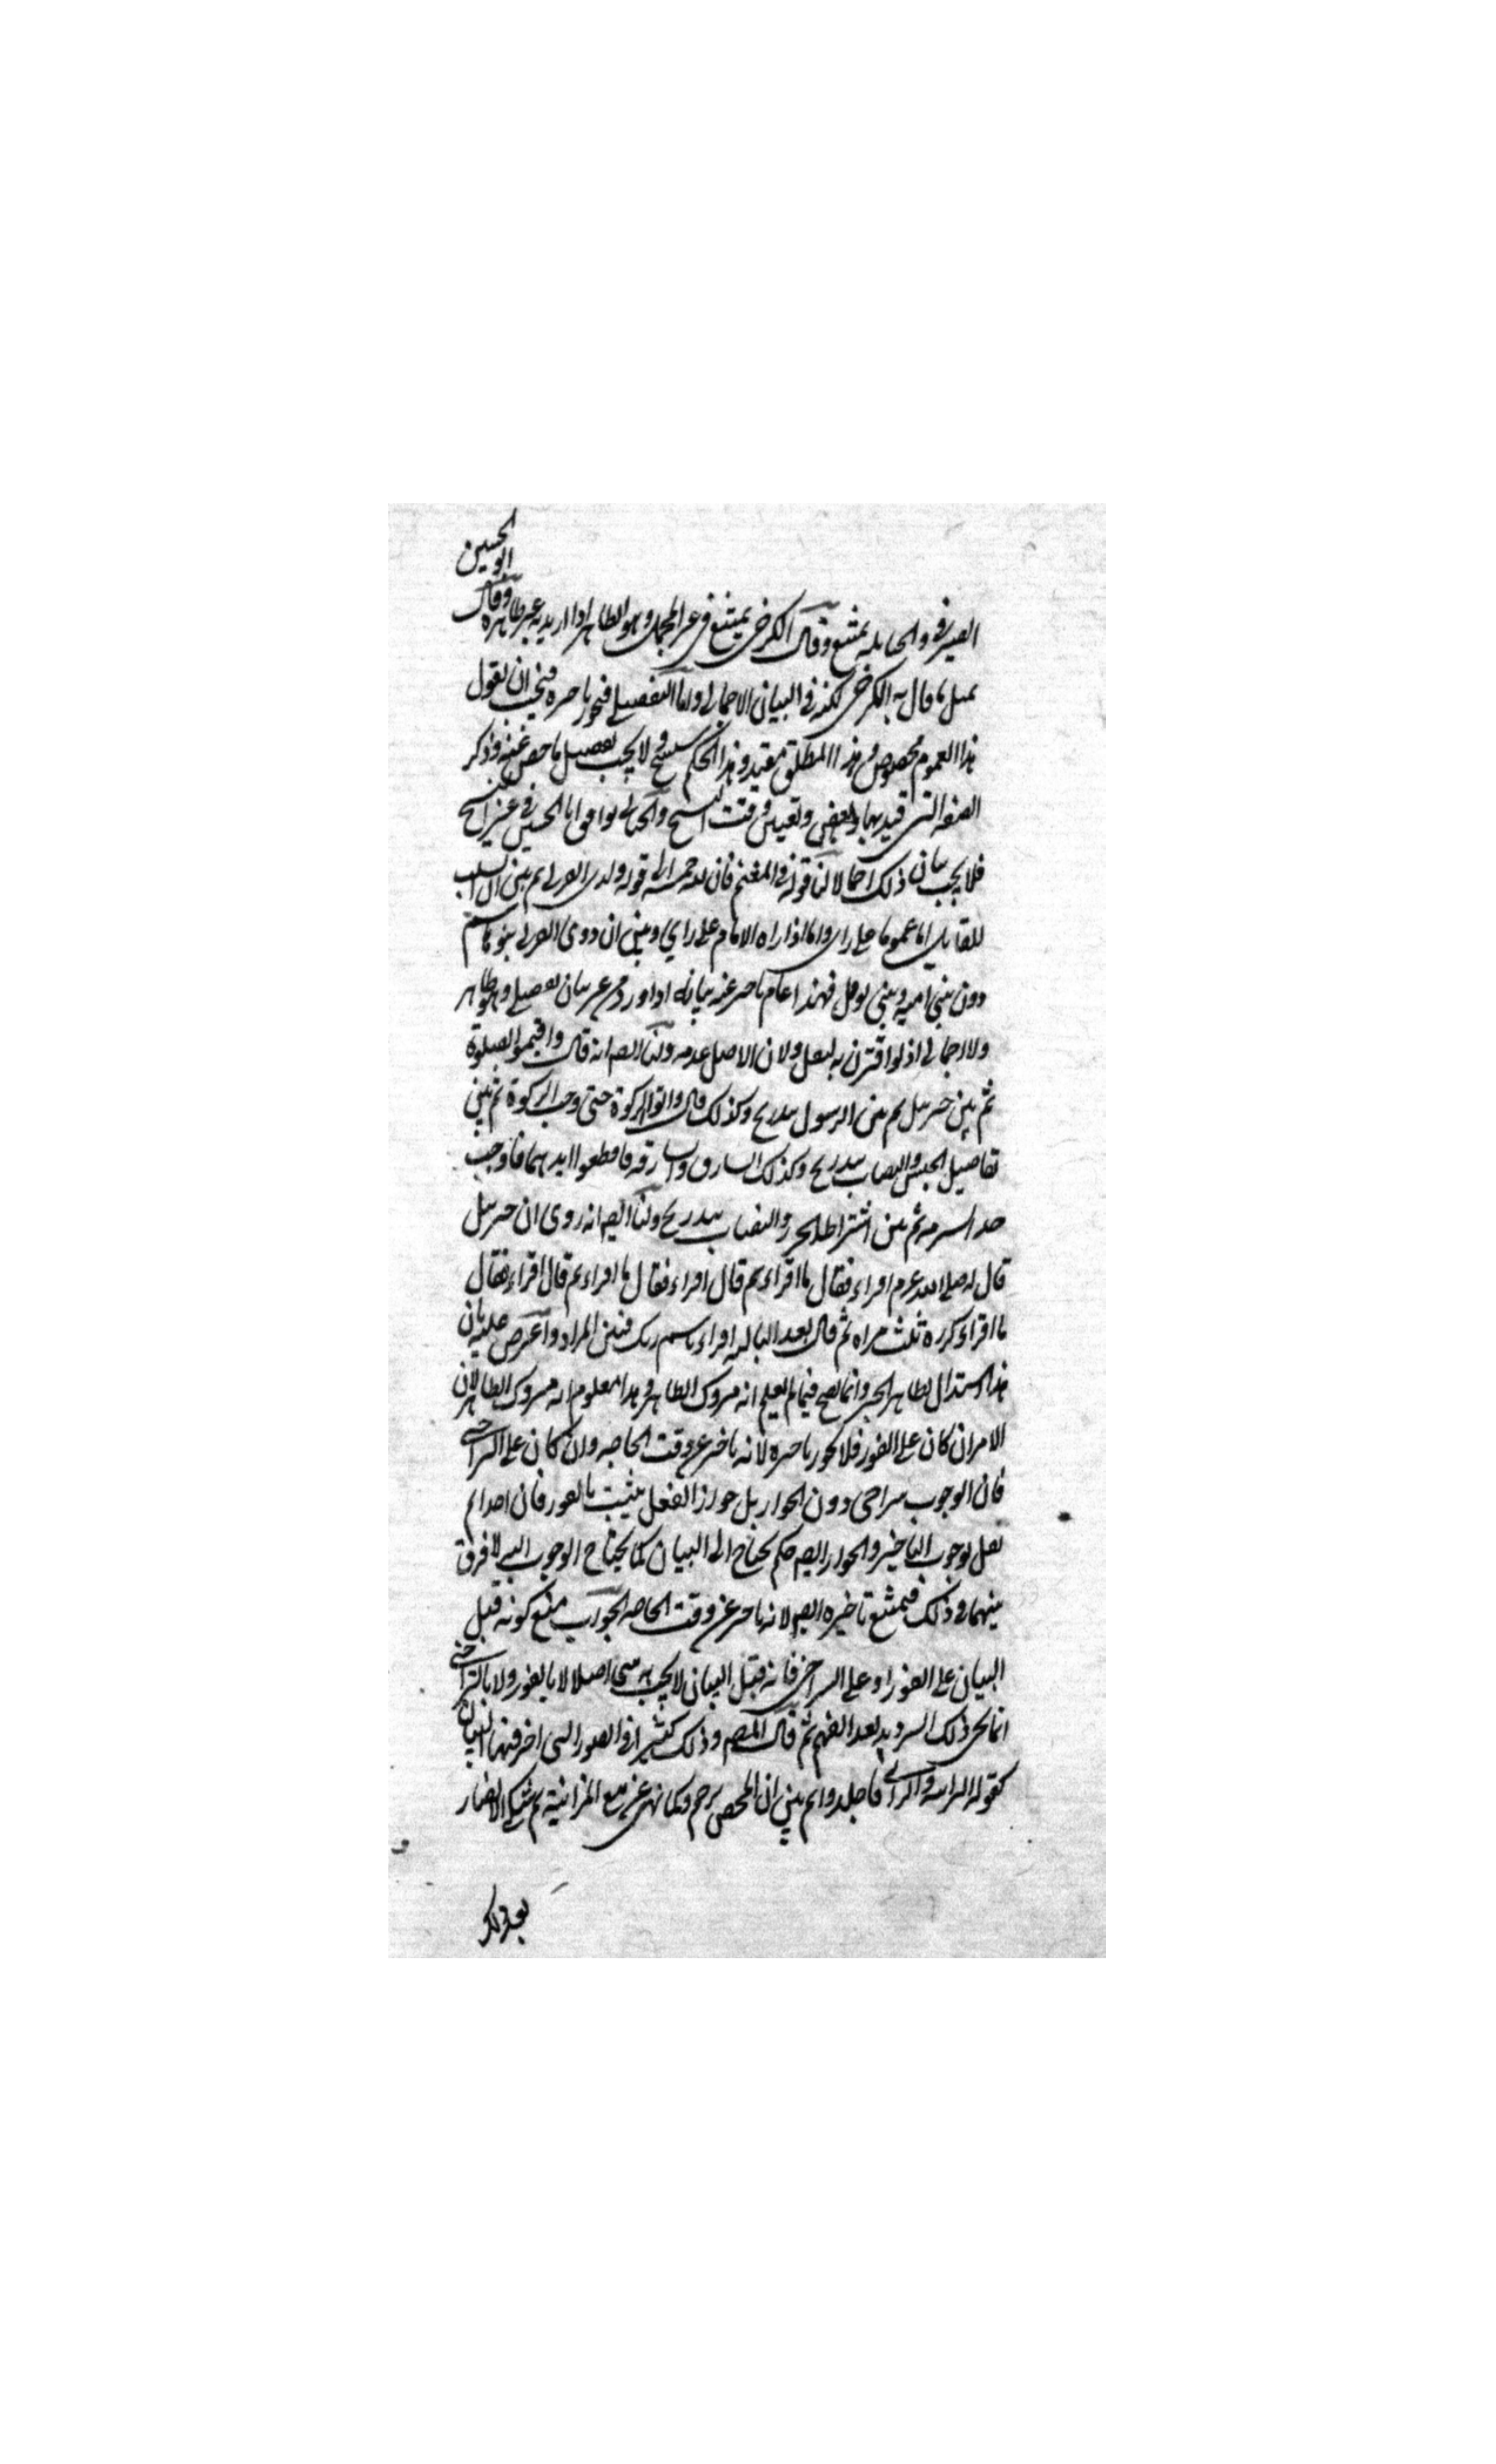 الصيرفي والحنابله يمتنع وقال الكرخي يمتنع في غير المجمل وهو الظاهر اذا اريد به غير ظاهره وقال
ابو الحسين
مثل ما قال به الكرخي لكنه في البيان الاجمالي واما التفصيلي فيجوز تاخيره فيجب ان يقول
هذا العموم مخصوص وهذا المطلق مقيد وهذا الحكم سينسخ ولا يجب تفصيل ما خص عنه وذكر
الصفه التي قيد بها وتعيين وقت النسخ والجبائي يوافق ابا الحسين في غير النسخ
فلا يجب بيان ذلك اجمالا لنا قوله في المغنم فان لله خمسه الى قوله ولذى القربى ثم بين ان السلب
للقاتل اما عموما على راى واما اذا راه الامام على راي وبين ان ذوى القربى بنو هاشم
دون بني اميه وبني نوفل فهذا عام تاخر عنه بيانه اذا ورد من غير بيان تفصيلي وهو ظاهر
ولا اجمالي اذ لو اقترن به لنقل ولان الاصل عدمه ولنا ايضا انه قال واقيموا الصلوة
ثم بين جبريل ثم بين الرسول بتدريج وكذلك قال واتوا الزكوة حتى وجب الزكوة ثم بين
تفاصيل الجنس والنصاب بتدريج وكذلك السارق والسارقه فاقطعوا ايديهما فاوجب
حد السرقه ثم بين اشتراط الحرز والنصاب بتدريج ولنا ايضا انه روى ان جبريل
قال له صلى الله عليه وسلم اقراء فقال ما اقراء ثم قال اقراء فقال ما اقراء ثم قال اقراء فقال
ما اقراء كرره ثلث مراه ثم قال بعد الثالثه اقراء باسم ربك فبين المراد واعترض عليه بان
هذا استدلال بظاهر الخبر وانما يصح فيما لم يعلم انه متروك الظاهر وهذا معلوم انه متروك الظاهر لان
الامر ان كان على الفور فلا يجوز تاخيره لانه تاخر عن وقت الحاجه وان كان على التراخي
فان الوجوب يتراخى دون الجواز بل جواز الفعل يثبت بالفور فان احدا لم
يقل بوجوب التاخير والجواز ايضا حكم يحتاج الى البيان كما يحتاج الوجوب اليه لا فرق
بينهما في ذلك فيمتنع تاخيره ايضا لانه تاخر عن وقت الحاجه الجواب منع كونه قبل
البيان على الفور او على التراخي فانه قبل البيان لا يجب به شي اصلا لا بالفور ولا بالتراخي
انما يجي ذلك الترديد بعد الفهم ثم قال المص وذلك كثير اي الصور التي اخر فيها البيان
كقوله الزانيه والزاني فاجلدوا ثم بين ان المحصن يرجم وكما نهى عن بيع المزابنة ثم شكى الانصار
بعد ذلك